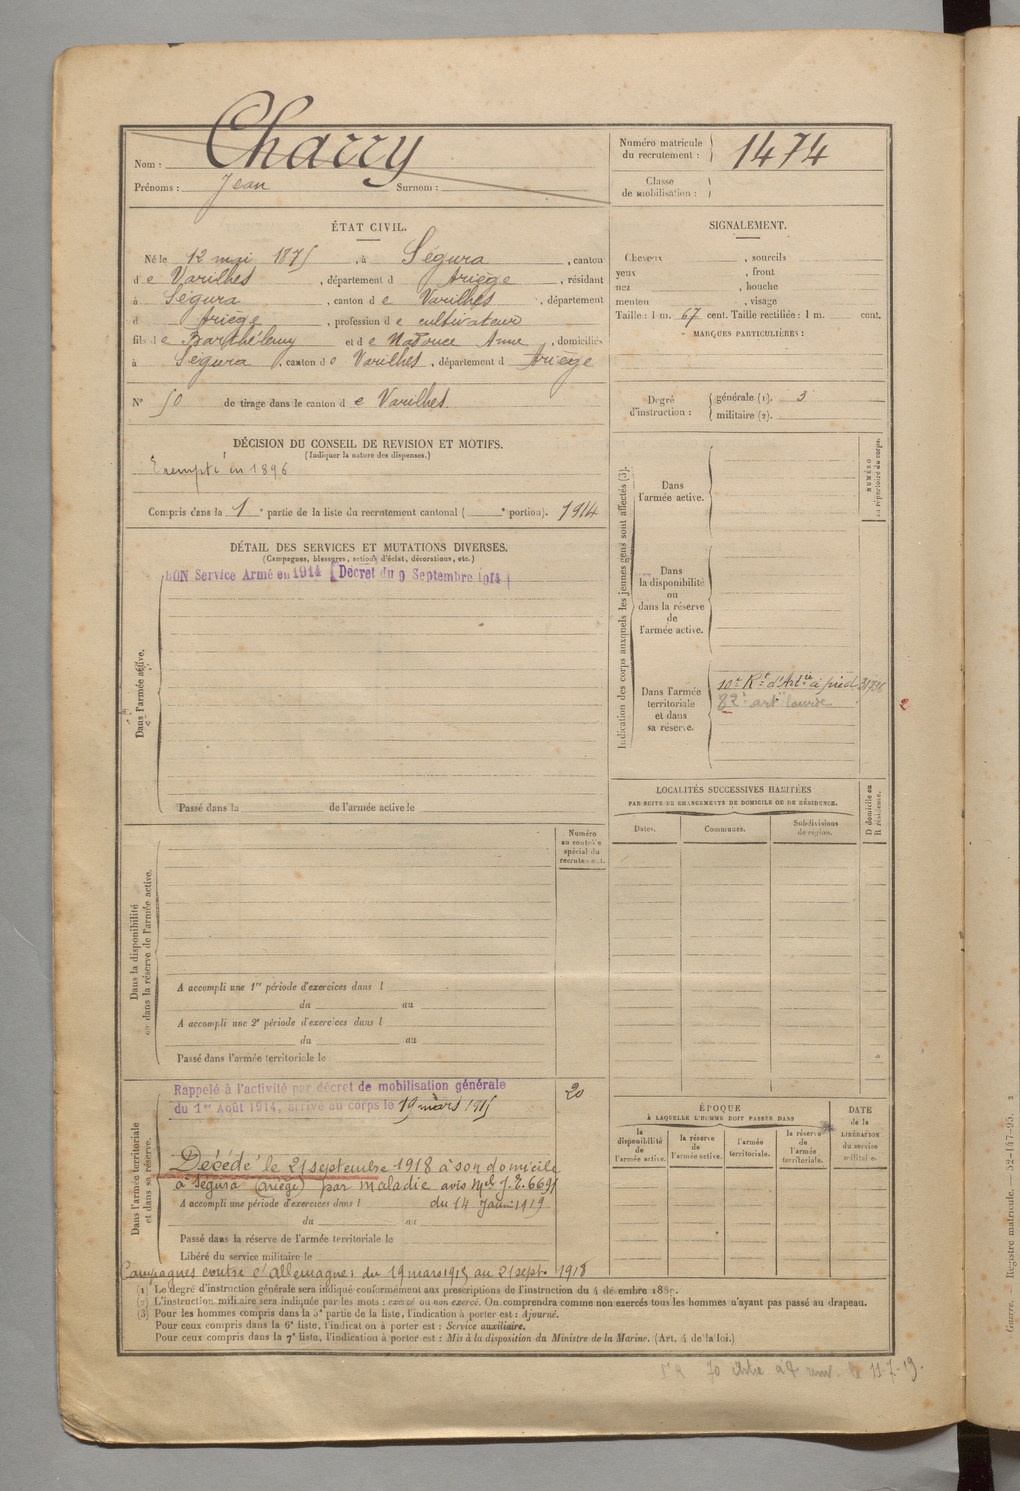 Nom : Charry
Prénoms : Jean Surnom :
Numéro matricule du recrutement : 1474
Classe de mobilisation :
ÉTAT CIVIL.
Né le 12 mai 1875, à Ségura, canton
de Varilhes, département d Ariège, résidant
à Ségura, canton de Varilhes, département
d Ariège, profession de cultivateur
fils de Barthélemy et de Nadouce Anne, domiciliés
à Ségura, canton de Varilhes, département d Ariège
N° 50 de tirage dans le canton de Varilhes.
DÉCISION DU CONSEIL DE REVISION ET MOTIFS.
(Indiquer la nature des dispenses.)
Exempté en 1896
Compris dans la 1e partie de la liste du recrutement cantonal ( e portion). 1914
SIGNALEMENT.
Cheveux , sourcils
yeux , front
nez , bouche
menton , visage
Taille : 1 m. 67 cent. Taille rectifiée : 1 m. cent.
MARQUES PARTICULIÈRES :
Degré d'instruction : générale (1). 3
militaire (2).
DÉTAIL DES SERVICES ET MUTATIONS DIVERSES.
(Campagnes, blessures, actions d'éclat, décorations, etc.)
BON Service Armé en 1914 (Décret du 9 Septembre 1914)
Dans l'armée active.
Passé dans la de l'armée active le
Indication des corps auxquels les jeunes gens sont affectés (3).
NUMÉRO au répertoire du corps.
Dans
l'armée active.
Dans
la disponibilité
ou
dans la réserve
de
l'armée active.
Dans l'armée
territoriale
et dans
sa réserve.
10e Rt d'Artie à pied
82e artie lourde
2
LOCALITÉS SUCCESSIVES HABITÉES
PAR SUITE DE CHANGEMENTS DE DOMICILE OU DE RÉSIDENCE.
Dates. Communes. Subdivisions de région.
D domicile ou R résidence.
Numéro
au contrôle
spécial du
recrutement.
Dans la disponibilité
ou dans la réserve de l'armée active.
A accompli une 1re période d'exercices dans l
du au
A accompli une 2e période d'exercices dans l
du au
Passé dans l'armée territoriale le
Dans l'armée territoriale
et dans sa réserve.
Rappelé à l'activité par décret de mobilisation générale
du 1er Août 1914, arrivé au corps le 19 mars 1915
20
Décédé le 21 septembre 1918 à son domicile
à Ségura (Ariège) par maladie avis
A accompli une période d'exercices dans l du 14 1919.
du au
Passé dans la réserve de l'armée territoriale le
Libéré du service militaire le
Campagnes contre l'Allemagne : du 19 mars 1915 au 21 sept. 1918
ÉPOQUE
À LAQUELLE L'HOMME DOIT PASSER DANS
la disponibilité de l'armée active.
la réserve de l'armée active.
l'armée territoriale.
la réserve de l'armée territoriale.
DATE
de la
LIBÉRATION
du service
militaire.
(1) Le degré d'instruction générale sera indiqué conformément aux prescriptions de l'instruction du 4 décembre 1889.
(2) L'instruction militaire sera indiquée par les mots : exercé ou non exercé. On comprendra comme non exercés tous les hommes n'ayant pas passé au drapeau.
(3) Pour les hommes compris dans la 5e partie de la liste, l'indication à porter est : Ajourné.
Pour ceux compris dans la 6e liste, l'indication à porter est : Service auxiliaire.
Pour ceux compris dans la 7e liste, l'indication à porter est : Mis à la disposition du Ministre de la Marine. (Art. 4 de la loi.)
11-7-19.
Guerre. — Registre matricule. — 52-147-95. 2